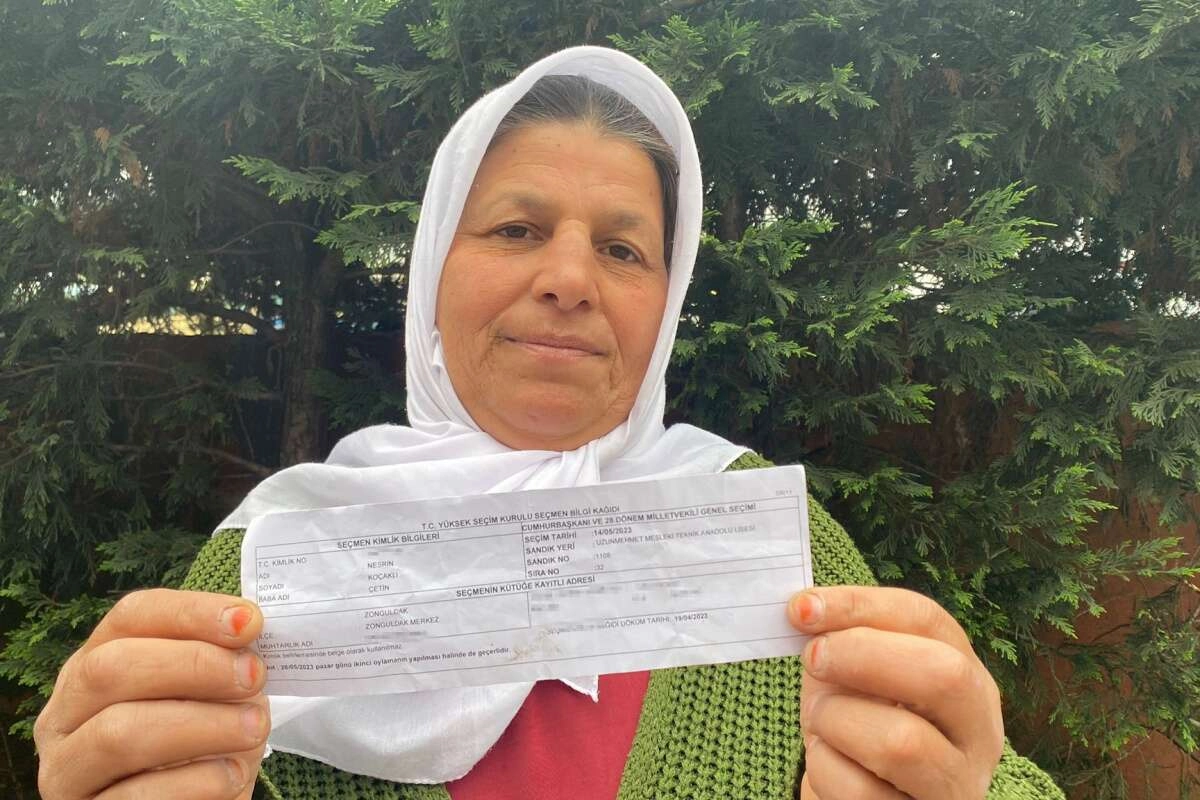 T.C. YÜKSEK SEÇİM KURULU SEÇMEN BİLGİ KAĞIDI
SEÇMEN KİMLİK BİLGİLERİ
T.C. KİMLİK NO
ADI NESRİN
SOYADI KOÇAKLI
BABA ADI ÇETİN
CUMHURBAŞKANI VE 28.DÖNEM MİLLETVEKİLİ GENEL SEÇİMİ
SEÇİM TARİHİ :14/05/2023
SANDIK YERİ :UZUNMEHMET MESLEKİ TEKNİK ANADOLU LİSESİ
SANDIK NO :1108
SIRA NO :32
SEÇMENİN KÜTÜĞE KAYITLI ADRESİ
:ZONGULDAK
İLÇE :ZONGULDAK MERKEZ
MUHTARLIK ADI
KAĞIDI DÖKÜM TARİHİ, 19/04/2023
Kimlik belirlemesinde belge olarak kullanılmaz.
28/05/2023 pazar günü ikinci oylamanın yapılması halinde de geçerlidir.